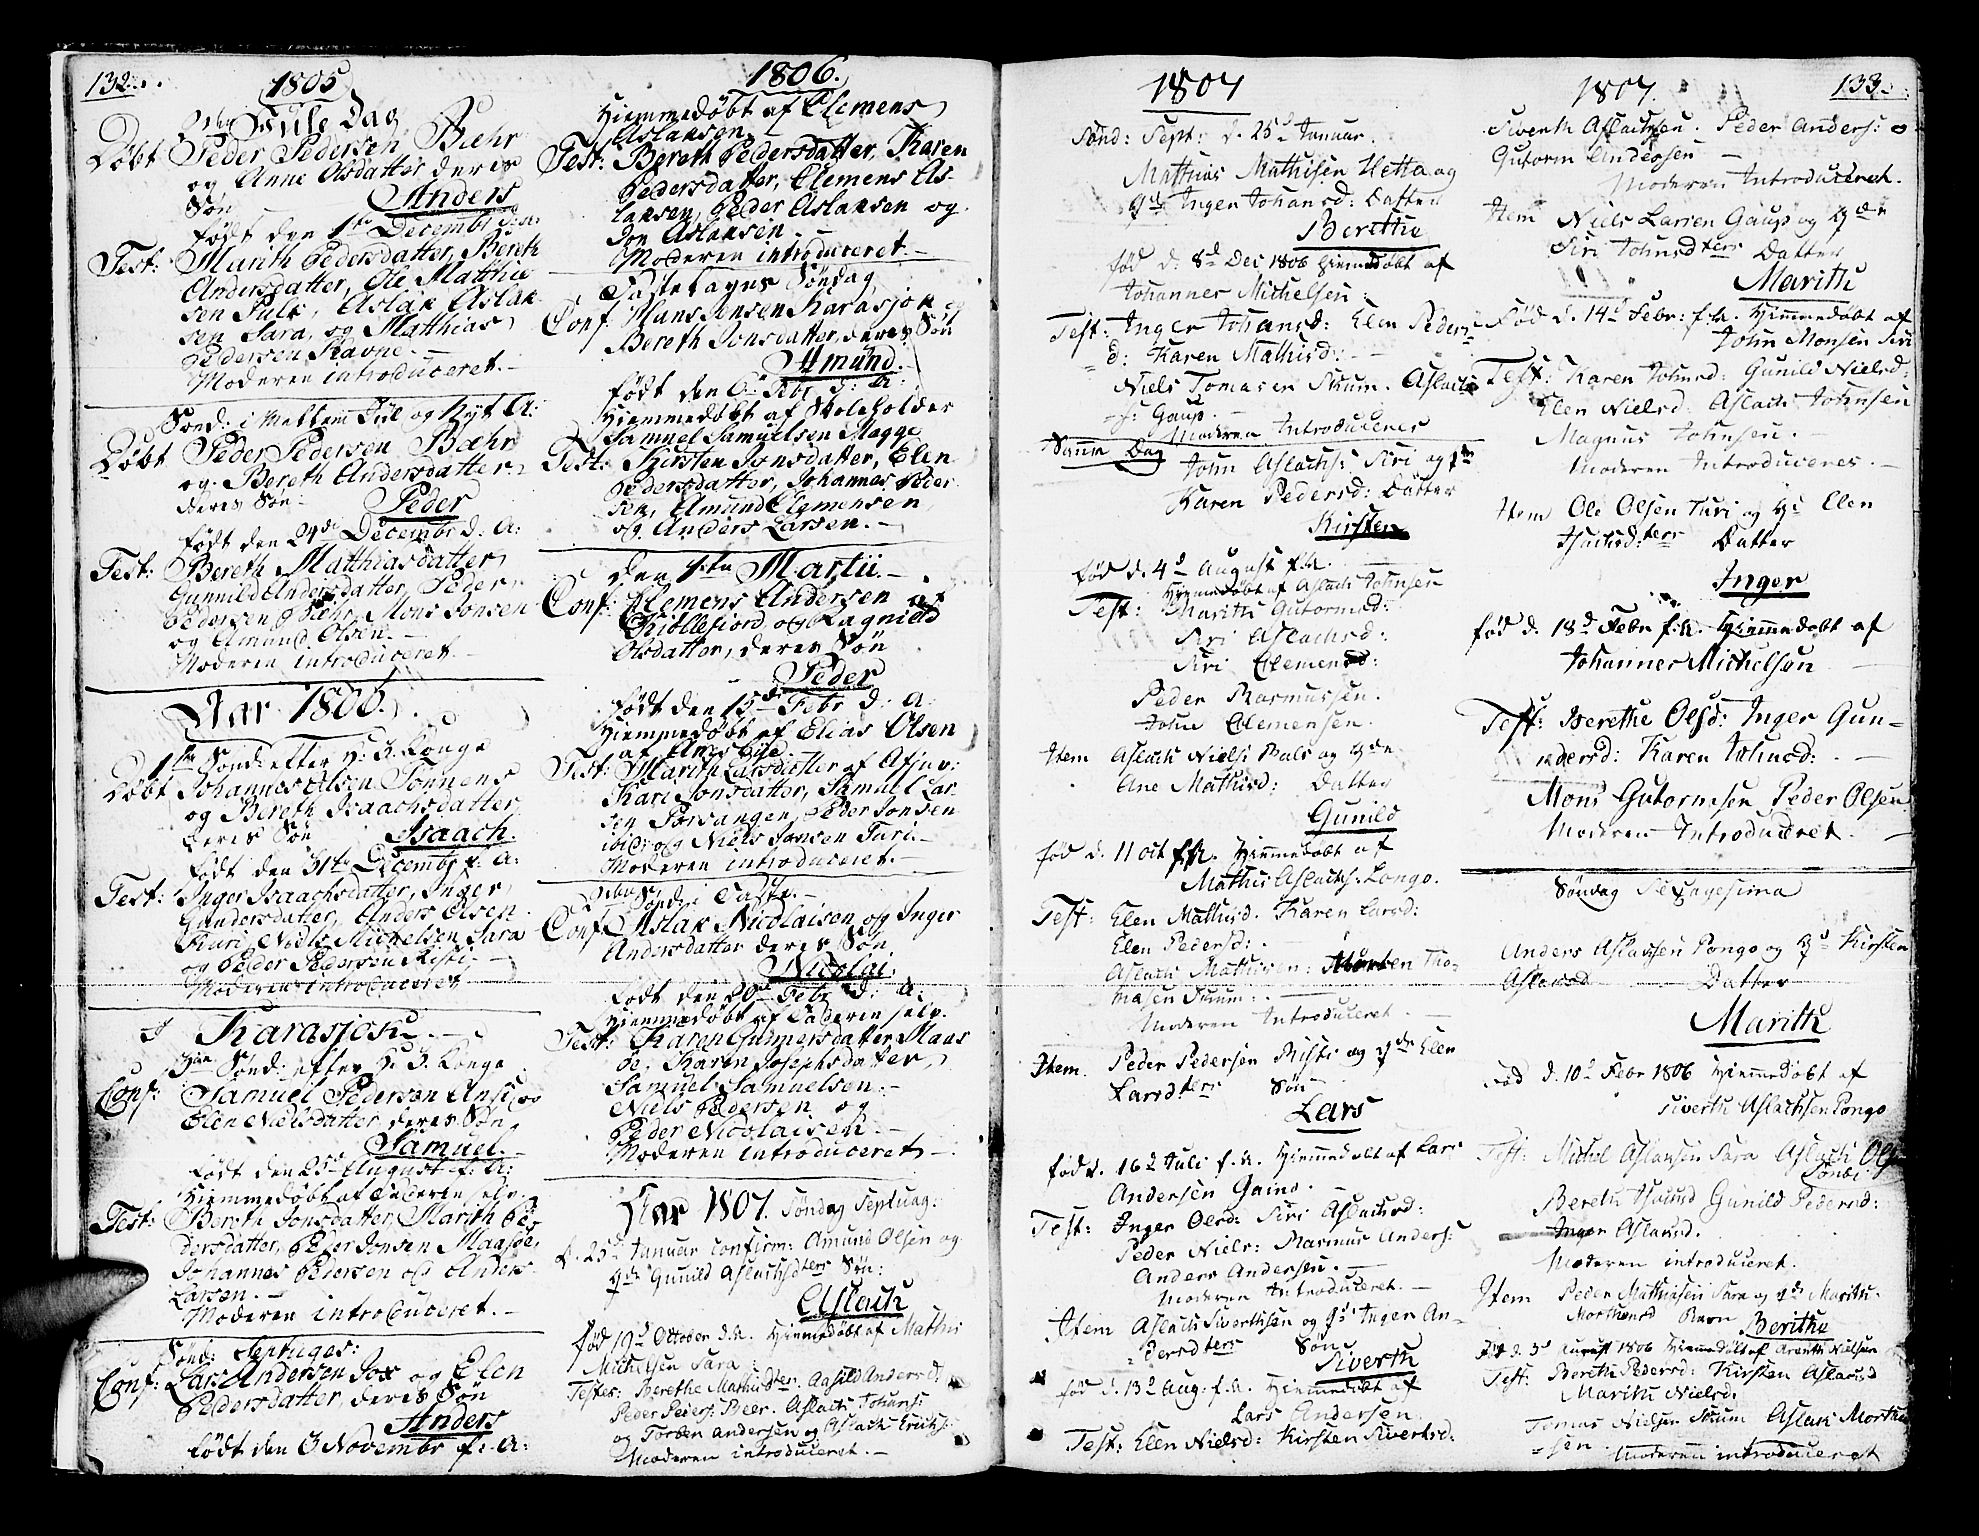 132.
1805
2den Jule Dag
Døbt Peder Pedersen Bæhr
og Anne Olsdatter deres
Søn Anders
født den 1te Decembr
Test: Marith Pedersdatter, Bereth
Andersdatter, Ole Matthis
sen Puls, Aslak Aslak
sen Sara, og Matthias
Pedersen Ravne.
Moderen introduceret.
Sønd: i Mellem Jul og Nyt A:
Døbt Peder Pedersen Bæhr
og Bereth Andersdatter
deres Søn
Peder
født den 24de Decembr d. A:
Test: Bereth Matthiasdatter
Gunnild Andersdatter, Peder
Pedersen Bæhr, Mons Jonsen
og Amund Olsen.
Moderen introduceret.
Aar 1806.
1te Sønd: efter H: 3 Konge
Døbt Johannes Olsen Sonnens
og Bereth Isaachsdatter
deres Søn Isaach.
født den 31te Decembr f: A:
Test: Inger Isaachsdatter, Inger
Gundersdatter, Anders Olsen
Kari, Niels Michelsen Sara
og Peder Pedersen Risti.
Moderen introduceret
I Karasjok
3die Sønd: efter H: 3. Konge
Conf: Samuel Pedersen Ansi og
Elen Nielsdatter deres Søn
Samuel.
født den 25de August f: A:
Hiemmedøbt af Faderen selv.
Test: Bereth Jonsdatter, Marith Pe-
dersdatter, Peder Jonsen Maasøe,
Johannes Pedersen og Anders
Larsen.
Moderen introduceret.
Sønd: Septuges:
Conf: Lars Andersen Jox og Elen
Pedersdatter, deres Søn
Anders
født den 6 Novembr f: A:
1806.
Hiemmedøbt af Clemens
Aslaksen
Test: Bereth Pedersdatter, Karen
Pedersdatter, Clemens As-
laksen, Peder Aslaksen og
Jon Aslaksen
Moderen introduceret.
Fastelagns Søndag
Conf: Hans Jensen Karasjok og
Bereth Jonsdatter, deres Søn
Amund.
født den 6te Febr d: A:
Hiemmedøbt af Skoleholder
Samuel Samuelsen Magge
Test: Kirsten Jonsdatter, Elen
Pedersdatter, Johannes Peder
sen, Amund Clemensen,
og Anders Larsen.
den 1ste Martii.
Conf: Clemens Andersen af
Kiøllefiord og Ragnild
Olsdatter, deres Søn
Peder
født den 15de Febr d. A:
Hiemmedøbt af Elias Olsen
Test: Marith Larsdatter af
Kari Jonsdatter, Samuel Lar
sen Porsanger, Peder Jonsen
ibid: og Niels Jonsen Turi.
Moderen introduceret.
2den Sønd i Faste.
Conf Aslak Nicolaisen og Inger
Andersdatter deres Søn
Nicolai.
født den 20de Febr d: A:
Hiemmedøbt af Faderen selv.
Test: Karen Gunnersdatter Maas
øe, Karen Josephsdatter,
Samuel Samuelsen.
Niels Pedersen og
Peder Nicolaisen.
Moderen introduceret
Aar 1807. Søndag Septuag:
d. 25d Januar confirm: Amund Olsen og
qde Gunild Aslachsdters Søn:
Aslach
fød 19d Octobr d.A. Hiemmedøbt af Mathis
Michelsen Sara
Testes: Berethe Mathisdter. Aasild Andersd:
Peder Peders: Beer. Aslach Johans:
og Torben Andersen og Aslach Erichs:
Moderen introduceret.
1807
Sønd: Sept: d. 25d Januar.
Mathias Mathisen Hetta og
qde Inger Johansd: Datter
Berithe
fød d. 8d Dec 1806 Hiemmedøbt af
Johannes Michelsen
Test: Inger Johansd: Elen Peders
d: Karen Mathisd:
Niels Tomasen Skum. Aslach
s: Gaup.
Moderen Introduceres
Samme Dag
John Aslachs: Siri og qde
Karen Pedersd: Datter
Kirsten
fød d. 4d August f.A.
Hiemmedøbt af Aslach Johnsen
Test: Marith Gutormsd:
Siri Aslachsd:
Siri Clemensd:
Peder Rasmussen.
John Clemensen.
Item Aslach Niels: Buls og qde
Ane Mathisd: Datter
Gunild
fød d. 11 oct f.A. Hiemmedøbt af
Mathis Aslachs: Longo.
Test: Elen Mathisd. Karen Larsd:
Elen Pedersd:
Aslach Mathisen: Morten Tho-
masen Skum:
Moderen Introduceret.
Item. Peder Pedersen Risti og qde Elen
Larsdters Søn
Lars
fød d. 16d Juli f.A. Hiemmedøbt af Lars
Andersen Gaino.
Test: Inger Olsd: Siri Aslachsd:
Peder Niels: Rasmus Anders:
Anders Andersen.
Moderen Introduceret.
Item Aslach Siverthsen og qd Inger An-
dersdters Søn
Siverth
fød d. 13d Aug. f.A. Hiemmedøbt af
Lars Andersen
Test: Elen Nielsd: Kirsten Siverthsd:
1807.
133.
Siverth Aslachsen. Peder Anders: o
Gutorm Andersen
Moderen Introduceret.
Item Niels Larsen Gaup og qde
Siri Johnsdters Datter
Marith
Fød d. 14d Febr: f.A. Hiemmedøbt af
John Monsen Siri
Test: Karen Johnsd: Gunild Nielsd:
Elen Nielsd: Aslach Johnsen
Magnus Johnsen.
Moderen Introduceres.
Item Ole Olsen Turi og H: Elen
Isachsd:ters Datter
Inger
fød d. 18d Febr f.A. Hiemmedøbt af
Johannes Michelsen
Test: Berethe Olsd: Inger Gun-
dersd: Karen Johnsd:
Mons Gutormsen Peder Olsen
Moderen Introduceret.
Søndag Sexagesima
Anders Aslachsen Pongo og qd Kirsten
Aslaksd Datter
Marith
Fød d. 10d Febr 1806 Hiemmedøbt af
Siverth Aslachsen Pongo
Test: Michel Aslaksen Sara Aslach Ols
Bereth Gunild Pedersd:
Inger Aslaksd.
Moderen introduceret.
Item Peder Mathisen Sara og qde Marith
Mortensd Barn Berithe
Fød d. 3d August 1806 Hiemmedøbt af Nielsen
Test: Bereth Pedersd: Kirsten Aslaksd
Marith Nielsd:
Tomas Nielsen Skum Aslach Morten
sen
Moderen introduceret